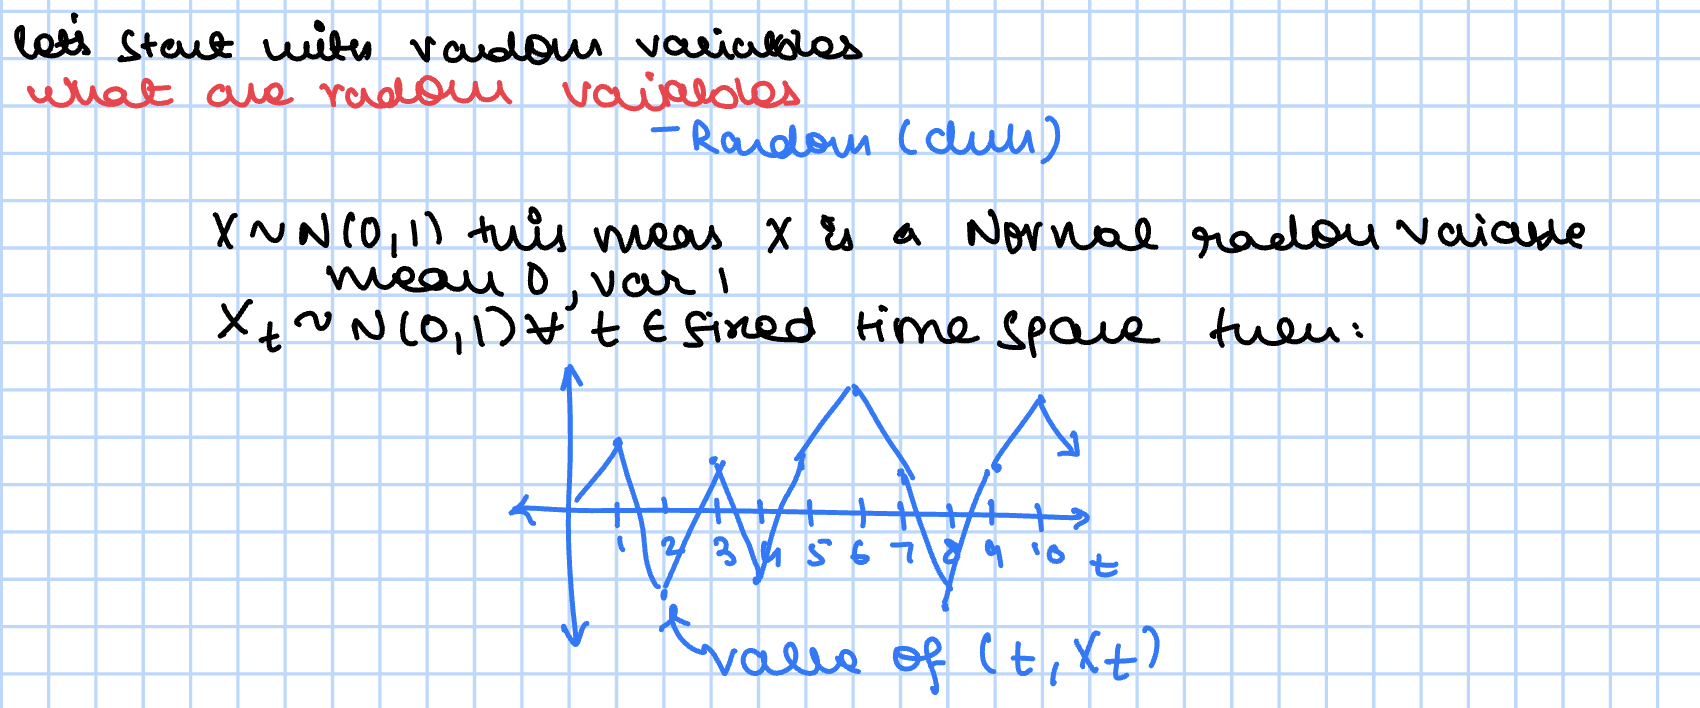 let's start with random variables
what are radom vaiables
- Random (duh)
X ~ N(0,1) this meas X is a Normal radom vaiable
mean 0, var 1
X_t ~ N(0,1) ∀ t ∈ fixed time space then:
1 2 3 4 5 6 7 8 9 10 t
value of (t, X_t)